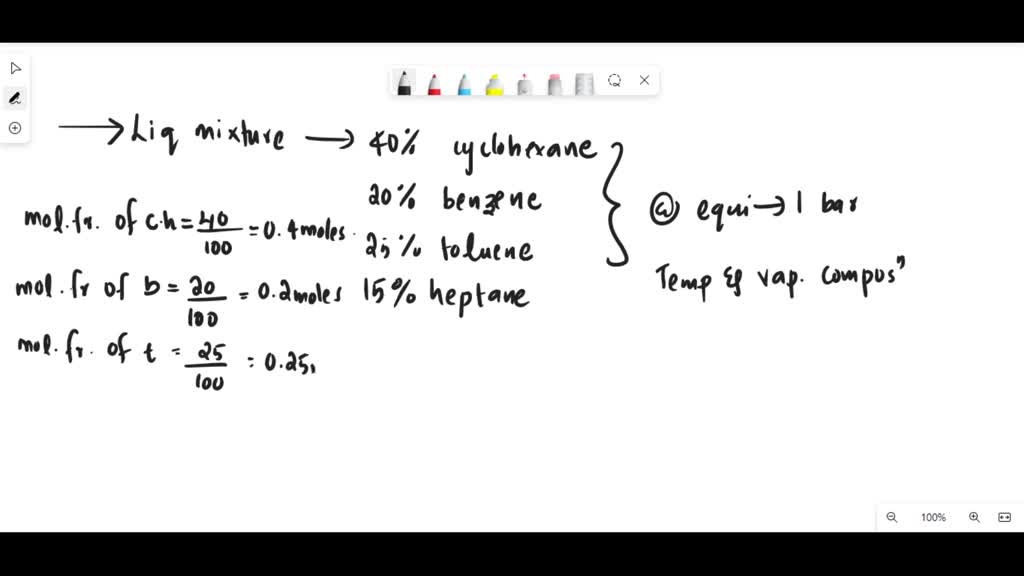 → Liq mixture → 40% cyclohexane
20% benzene
25% toluene
15% heptane
@ equi → 1 bar
Temp & vap. compos"
mol.fr. of c.h = 40/100 = 0.4 moles.
mol.fr of b = 20/100 = 0.2 moles
mol.fr. of t = 25/100 = 0.25,
100%